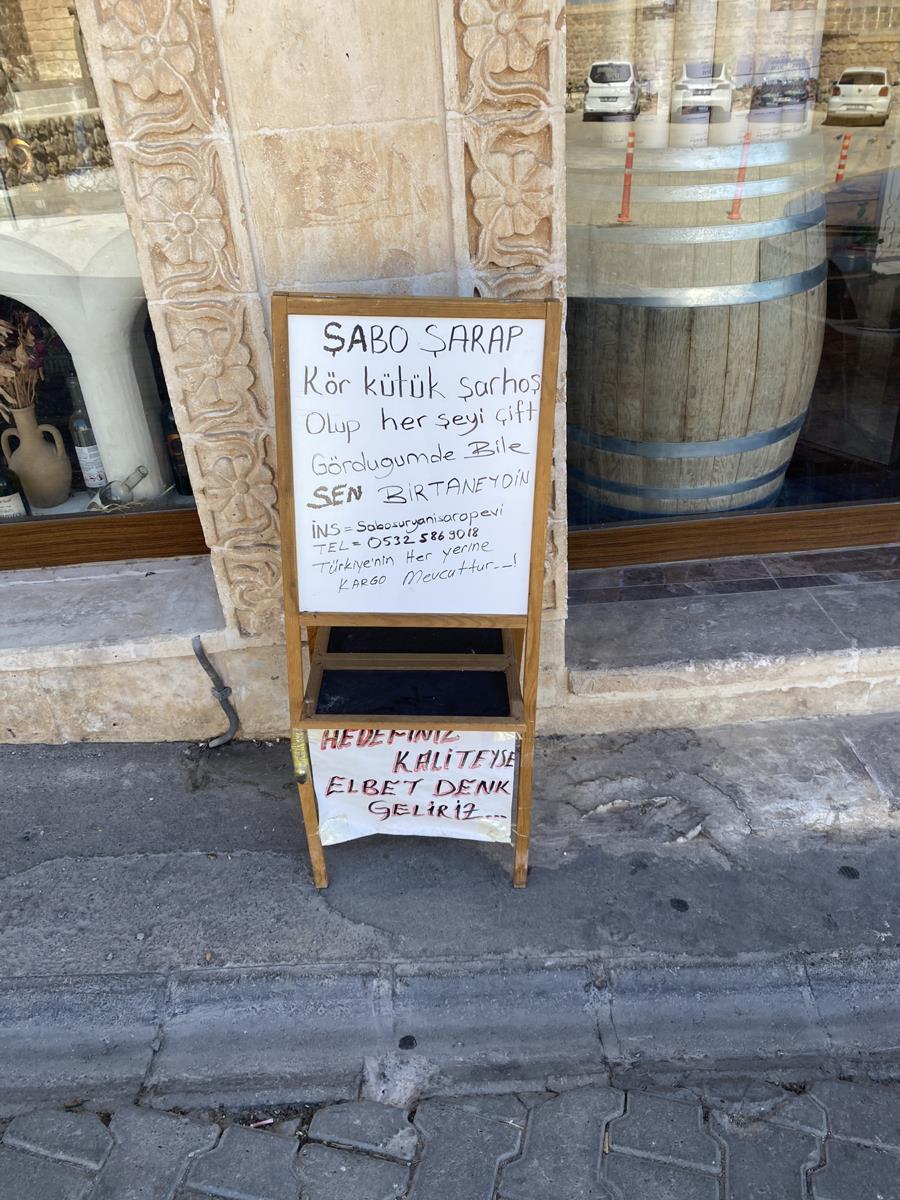 ŞABO ŞARAP
Kör kütük şarhoş
Olup her şeyi çift
Gördugumde Bile
SEN BİRTANEYDİN
İNS=Sabosuryanisarapevi
TEL=0532 586 9018
Türkiye'nin Her yerine
KARGO Mevcuttur--!
HEDEFİNİZ
KALİTEYSE
ELBET DENK
GELİRİZ...